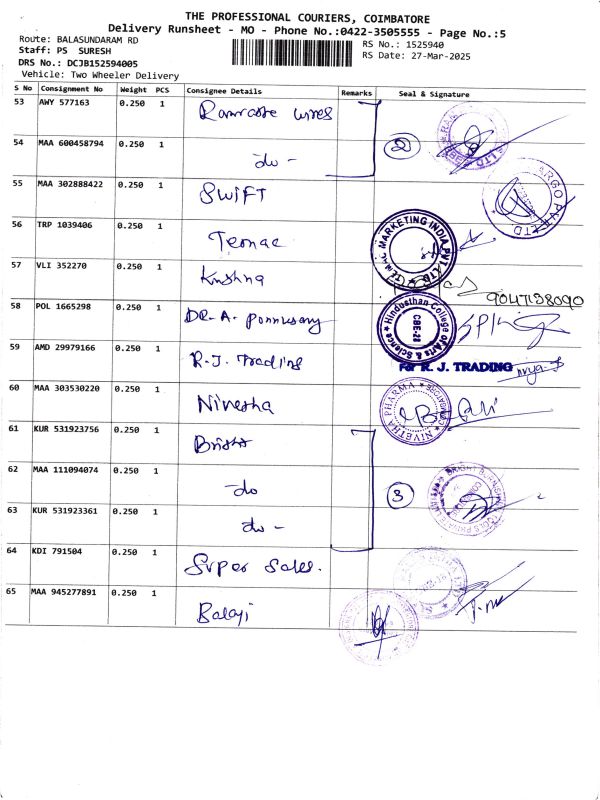 THE PROFESSIONAL COURIERS, COIMBATORE
Delivery Runsheet - MO - Phone No.:0422-3505555 - Page No.:5
Route: BALASUNDARAM RD
Staff: PS SURESH
DRS No.: DCJB152594005
Vehicle: Two Wheeler Delivery
RS No.: 1525940
RS Date: 27-Mar-2025
S No Consignment No Weight PCS Consignee Details Remarks Seal & Signature
53 AWY 577163 0.250 1 Ramratte wires
54 MAA 600458794 0.250 1 -do- 2
55 MAA 302888422 0.250 1 SWIFT
56 TRP 1039406 0.250 1 Temac
TEMAC MARKETING INDIA PVT. LTD
57 VLI 352270 0.250 1 Krishna
9047138090
58 POL 1665298 0.250 1 DR. A. Ponnusamy
Hindusthan College of Arts & Science
CBE-28
59 AMD 29979166 0.250 1 R.J. Trading
For R. J. TRADING
60 MAA 303530220 0.250 1 Nivetha
NIVETHA PHARMA
COIMBATORE
61 KUR 531923756 0.250 1 Bright
62 MAA 111094074 0.250 1 -do
63 KUR 531923361 0.250 1 -do- 3
64 KDI 791504 0.250 1 Super Sales.
65 MAA 945277891 0.250 1 Balaji